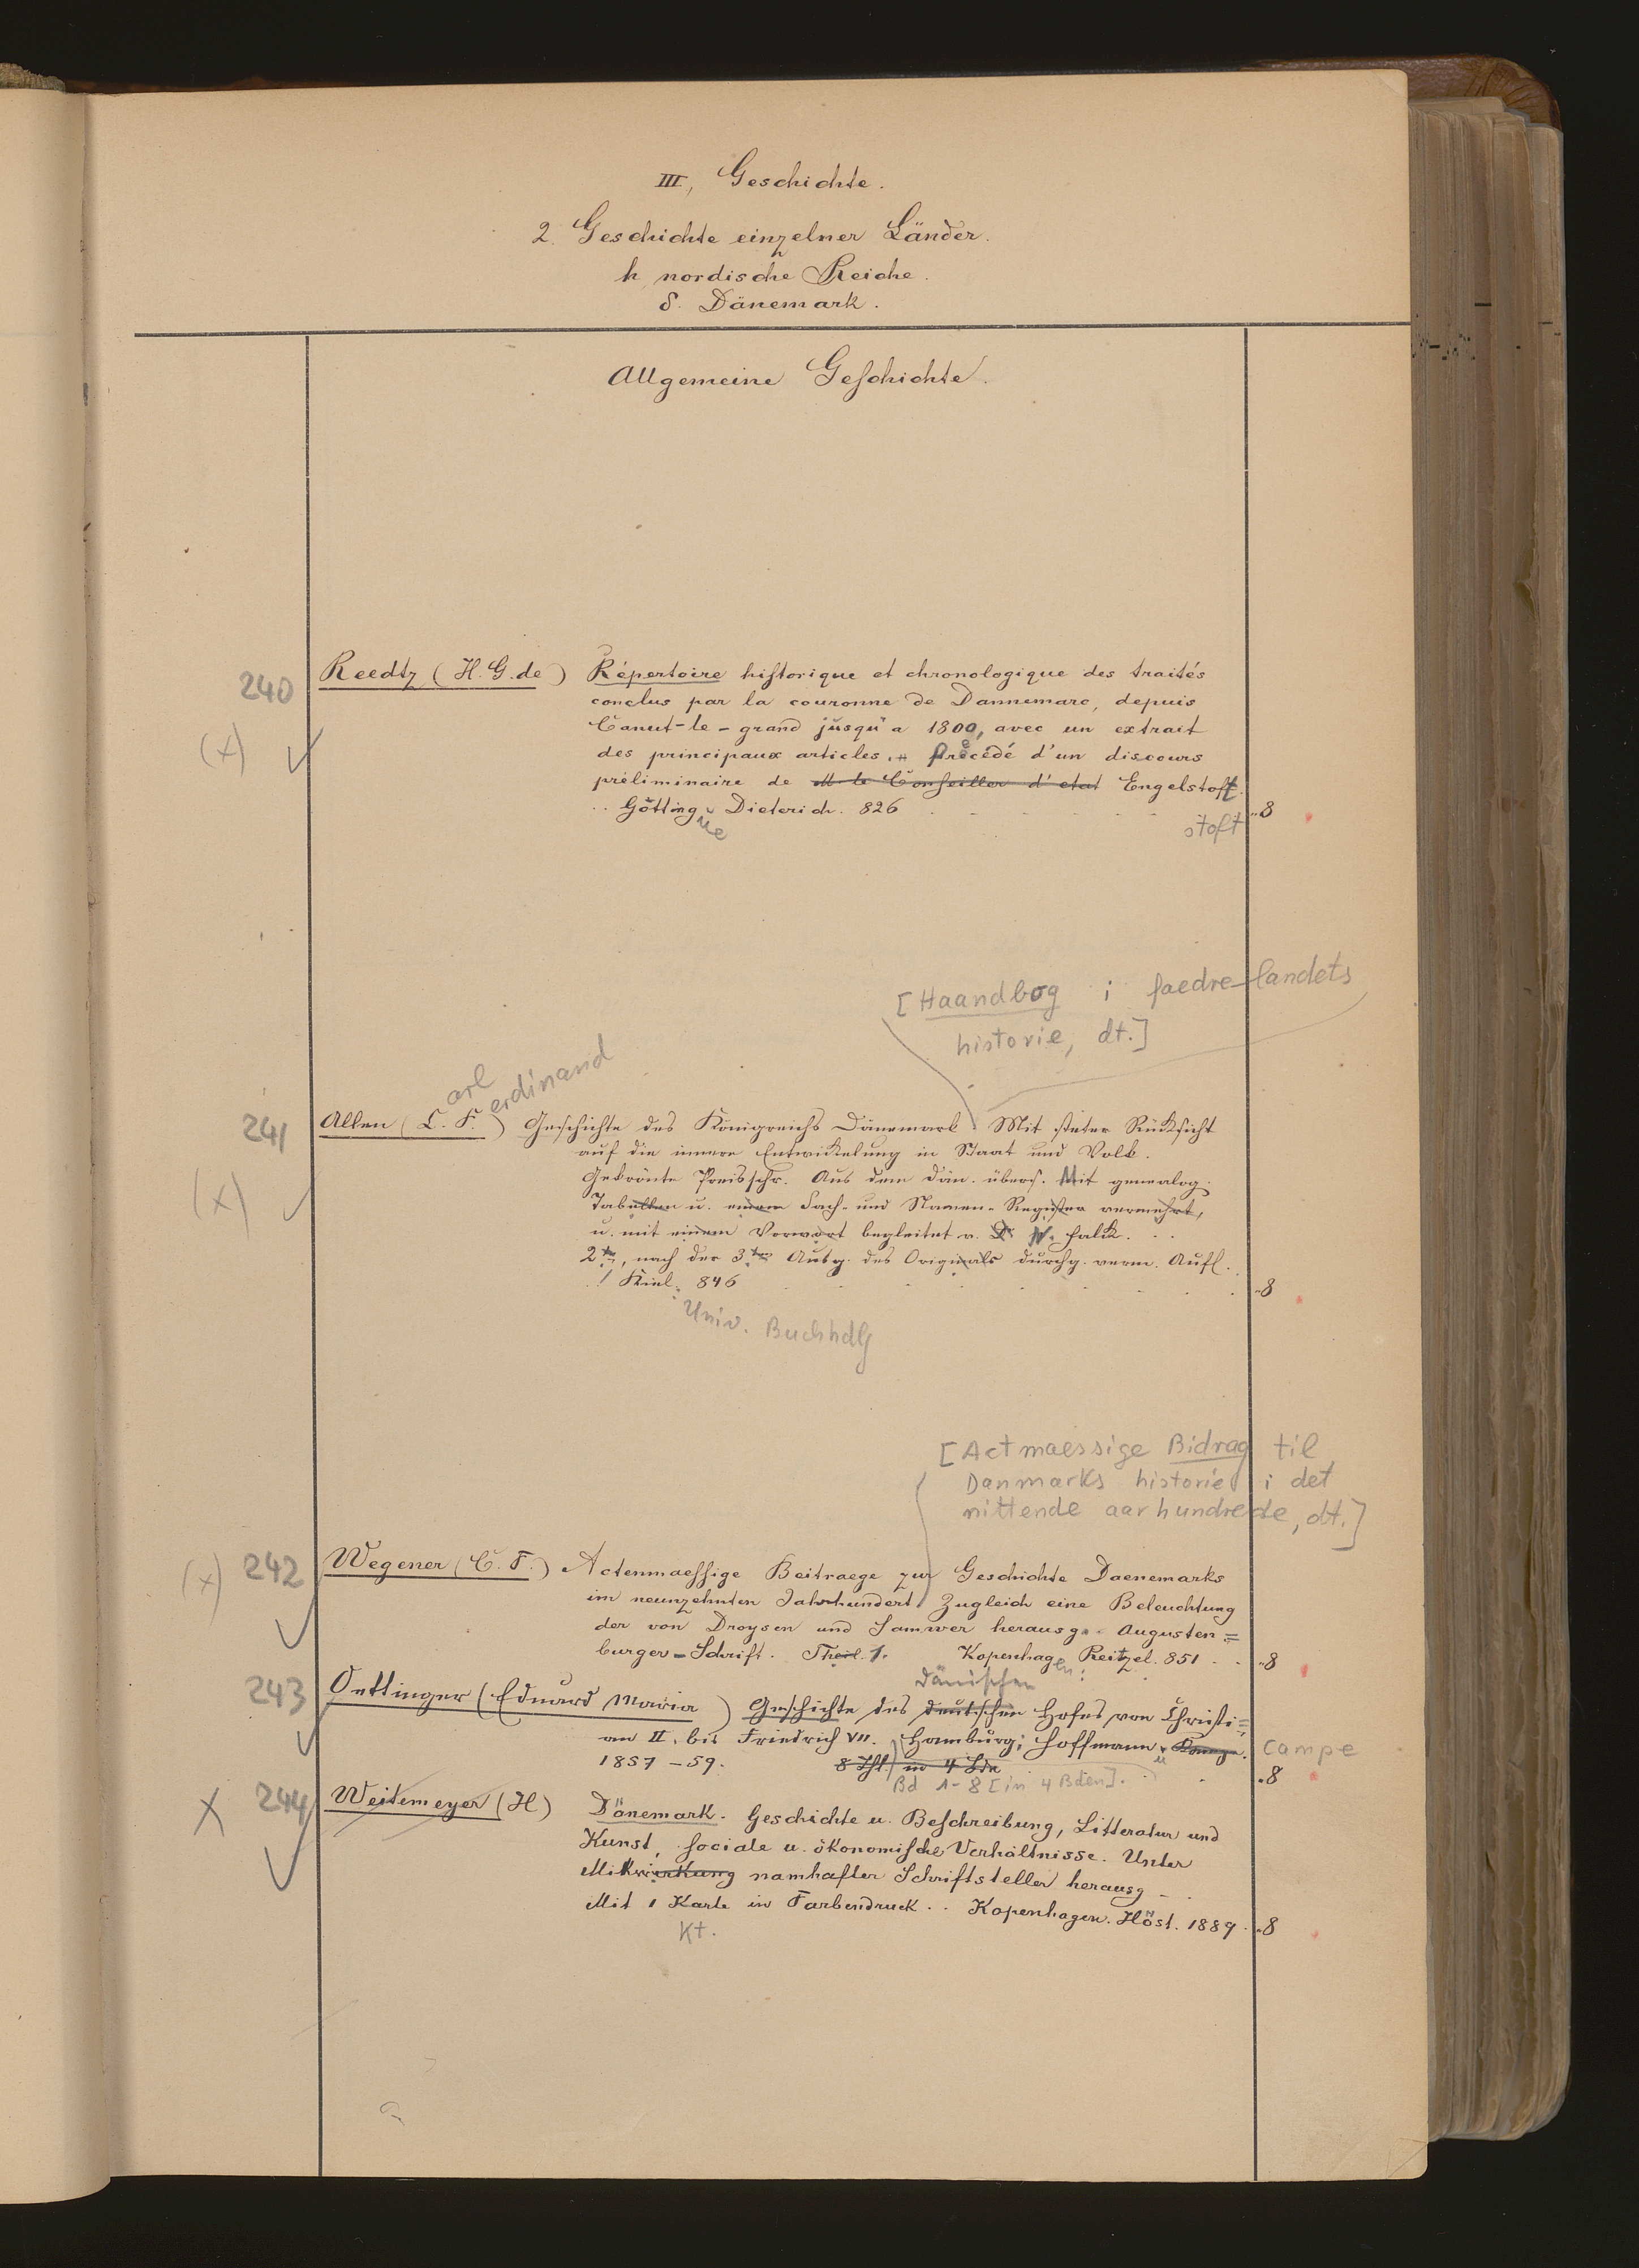 III, Geschichte.
2. Geschichte einzelner Länder.
h, nordische Reiche.
δ. Dänemark.
Allgemeine Geschichte.
240 Reedtz (H. G. de) Répertoire historique et chronologique des traités
conclus par la couronne de Dannemarc, depuis
(x) Canut-le-grand jusqu'a 1800, avec un extrait
des principaux articles. Précédé d'un discours
préliminaire de M. le Conseiller d'etat Engelstoft.
Götting Dieterich. 826 8
ue stoft
[Haandbog i faedre-landets
historie, dt.]
arl erdinand
241 Allen (C. F.) Geschichte des Königreichs Dänemark Mit steter Rücksicht
auf die innere Entwickelung in Staat und Volk.
(x) Gekrönte Preisschr. Aus dem Dän. übers. Mit genealog.
Tabellen u. einem Sach- und Namen-Register vermehrt,
u. mit einem Vorwort begleitet v. N. Falck.
2te, nach der 3ten Ausg. des Originals durchg. verm. Aufl.
Kiel. 846 8
Univ. Buchhdlg
[Actmaessige Bidrag til
Danmarks historie i det
nittende aarhundrede, dt.]
(x) 242 Wegener (C. F.) Actenmaessige Beitraege zur Geschichte Daenemarks
im neunzehnten Jahrhundert Zugleich eine Beleuchtung
der von Droysen und Samwer herausg. Augusten=
burger-Schrift. Theil 1. Kopenhagen: Reitzel. 851 8
Dänischen
243 Oettinger (Eduard Maria) Geschichte des deutschen Hofes von Christi=
an II. bis Friedrich VII. Hamburg: Hoffmann u. Campe. Campe
1857-59. 8 Thl. in 4 Bde 8
Bd 1-8 [in 4 Bden].
X 244 Weitemeyer (H) Dänemark. Geschichte u. Beschreibung, Litteratur und
Kunst, sociale u. ökonomische Verhältnisse. Unter
Mitwirkung namhafter Schriftsteller herausg
Mit 1 Karte in Farbendruck. Kopenhagen. Höst. 1889. 8
Kt.